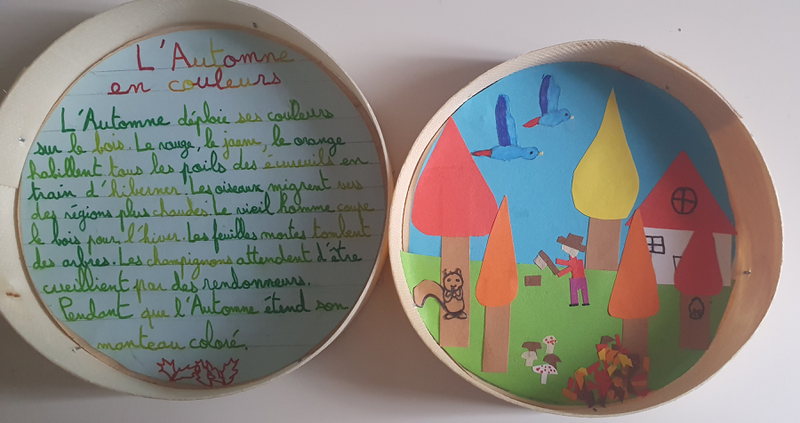 L'Automne
en couleurs
L'Automne déploie ses couleurs
sur le bois. Le rouge, le jaune, le orange
habillent tous les poils des écureuils en
train d'hiberner. Les oiseaux migrent vers
des régions plus chaudes. Le vieil homme coupe
le bois pour l'hiver. Les feuilles mortes tombent
des arbres. Les champignons attendent d'être
cueillient par des rendonneurs.
Pendant que l'Automne étend son
manteau coloré.